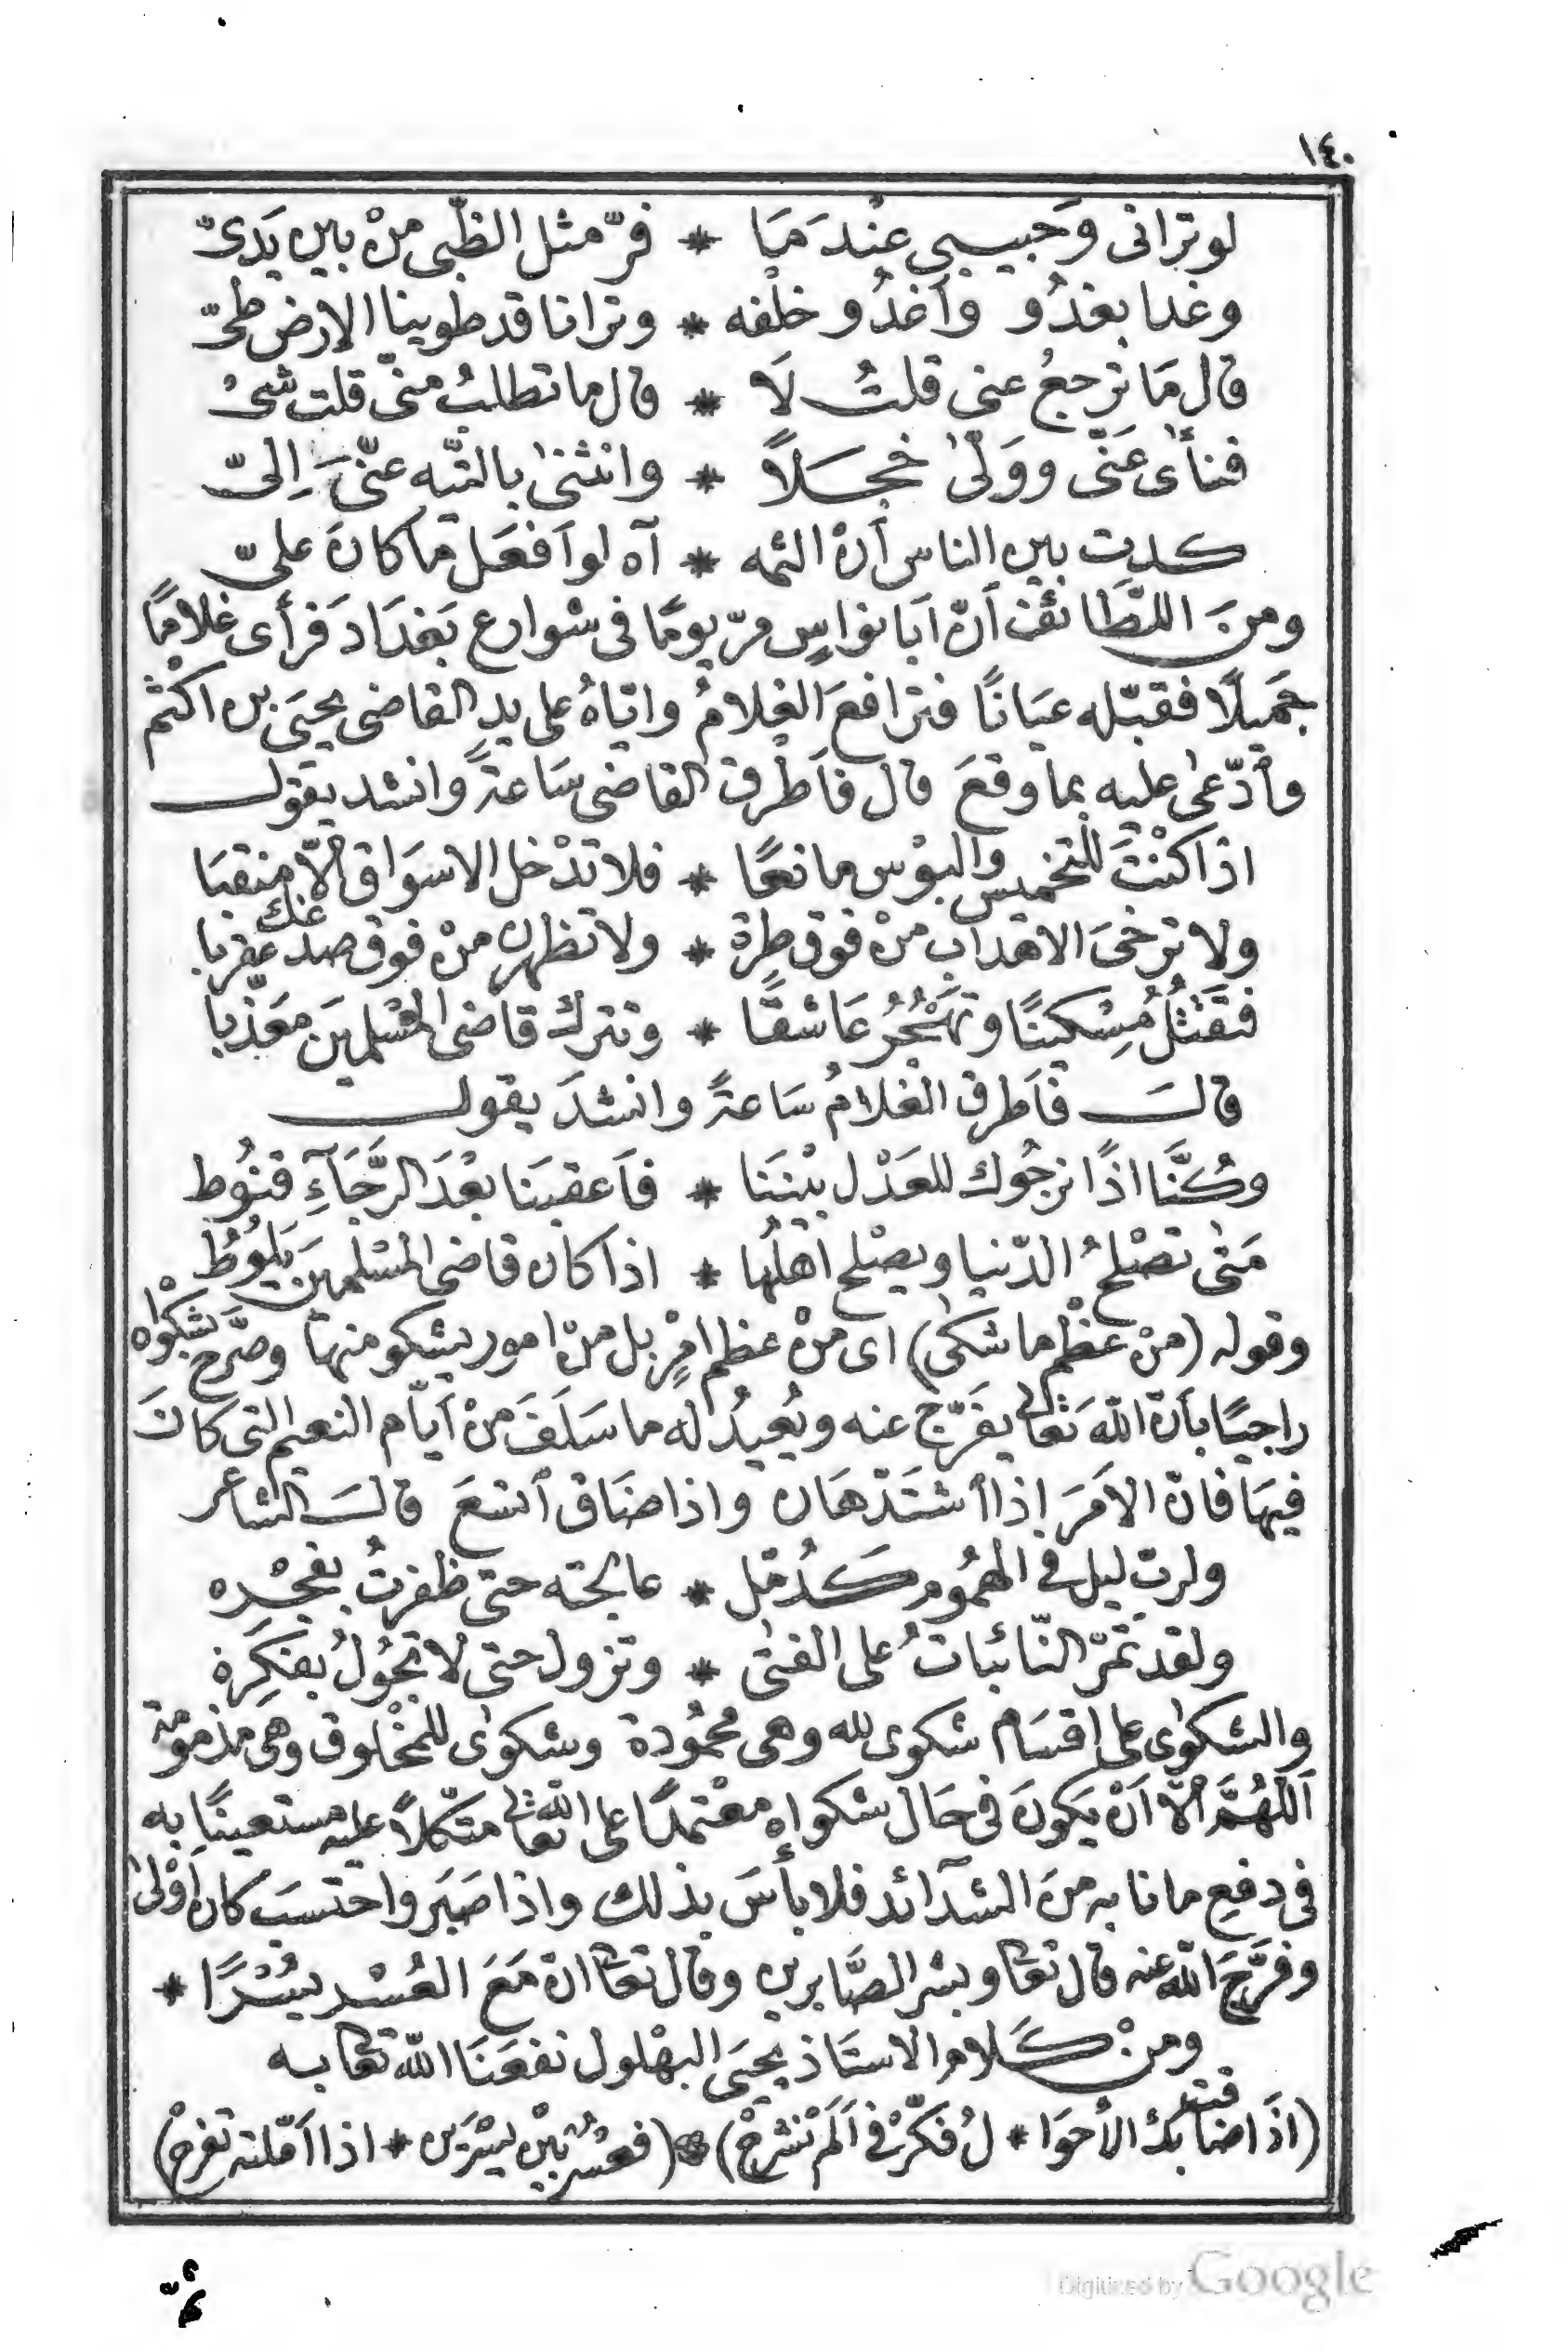 ١٤٠
لو ترانى وَحبيبى عِنْدَ مَا * فرّ مثل الظّبى منْ بين يَدَىّ
وغدا يغدُو وَأغدُو خلْفه * وترانا قد طوينا الارض طىّ
قال مَا ترجعُ عنى قلتُ لَا * قال ما تطلبُ منّى قلت شىْ
فنأٰى عَنّى ووَلّىٰ خجَلاً * وانثنىٰ بالتيّه عنّىَ اِلىّ
كدت بين الناس أن الثمه * آه لو اَفعَل مَا كانَ علىّ
ومنَ اللّطَائف أنّ اَبا نواسٍ مرّ يومًا فى شوارع بَغدَادَ فرأى غلامًا
جَميلًا فقبّله عيَانًا فترافعَ الغلامُ واتّاهُ على يدِ القاضى يحيَى بن اكثم
وأدّعىٰ عليه بما وقعَ قال فاَطْرق القاضى سَاعةً وانشد يقول
اذا كنْتَ للتخميس والبوْس مانعًا * فلا تدْخل الاسوَاق اِلاّ منقبَا
ولا ترخىَ الاهداب منْ فوق طرة * ولا تظهرن منْ فوق صدغك عقربا
فتقتُلُ مُِسْكينًا وتهْجُرُ عَاشقًا * وتترك قاضى المسْلمينَ معَذّبا
قالَ فأطرق الغلامُ سَاعةً وانشدَ يقول
وكُنَّا اذًا نرجُوك للعَدْل بيْنَنا * فاَعقبنَا بعْدَ الرَّجَآءِ قنُوط
مَتىٰ تصْلحُ الدّنيا ويصْلح أهلُها * اذا كان قاضى المسْلمينَ يَلُوُطُ
وقوله (منْ عظْم ما شكىٰ) اى منْ عظم امْرٍ بل منْ امور يشكو منها وصَرَّح بشكْواه
راجيًا بأنّ اللّه تَعالى يفَرّج عنه ويُعيدُ له ما سَلَفَ منْ أيّام النعيم التى كانَ
فيهَا فانّ الامَرَ اِذا اُشتَدّ هَان واذا ضَاق اُتسَعَ قالَ الشاعر
ولربّ ليل فى الهمُوم كَدُمّل * عالجته حتى ظفرتُ بفجْره
ولقد تمُرّ النّائباتُ على الفتىٰ * وتزول حتى لا تجُولُ بفكِرَة
والشكوىٰ على اقسَام شكوى لله وهى محْمُودة وشكوىٰ للمخْلوق وهىَ مذمومَة
اَللّهُمَّ اِلاّ اَنْ يَكونَ فى حَال شكواه معْتمدًا على اللّه تعالى متكّلاً عليه مستعينًا به
فى دفعِ ما نابه منَ الشدآئد فلا بأسَ بذلك واذا صَبَر واحْتسَبَ كان اَوْلىٰ
وفَرَّجَ اللّه عنه قال تعَا وبشر الصَّابرين وقال تعَا انّ مَعَ العُسْر يُسْرًا *
ومنْ كَلام الاستَاذ يحيَى البهْلول نفعَنَا اللّه تعَا به
(اذَا ضَاقت بكَ الأحوَا * لُ فكّرْ فى اَلَمْ نَشْرحْ) * (فعُسْرٌ بيْنَ يسْرَين * اذا اَمّلته تفرحْ)